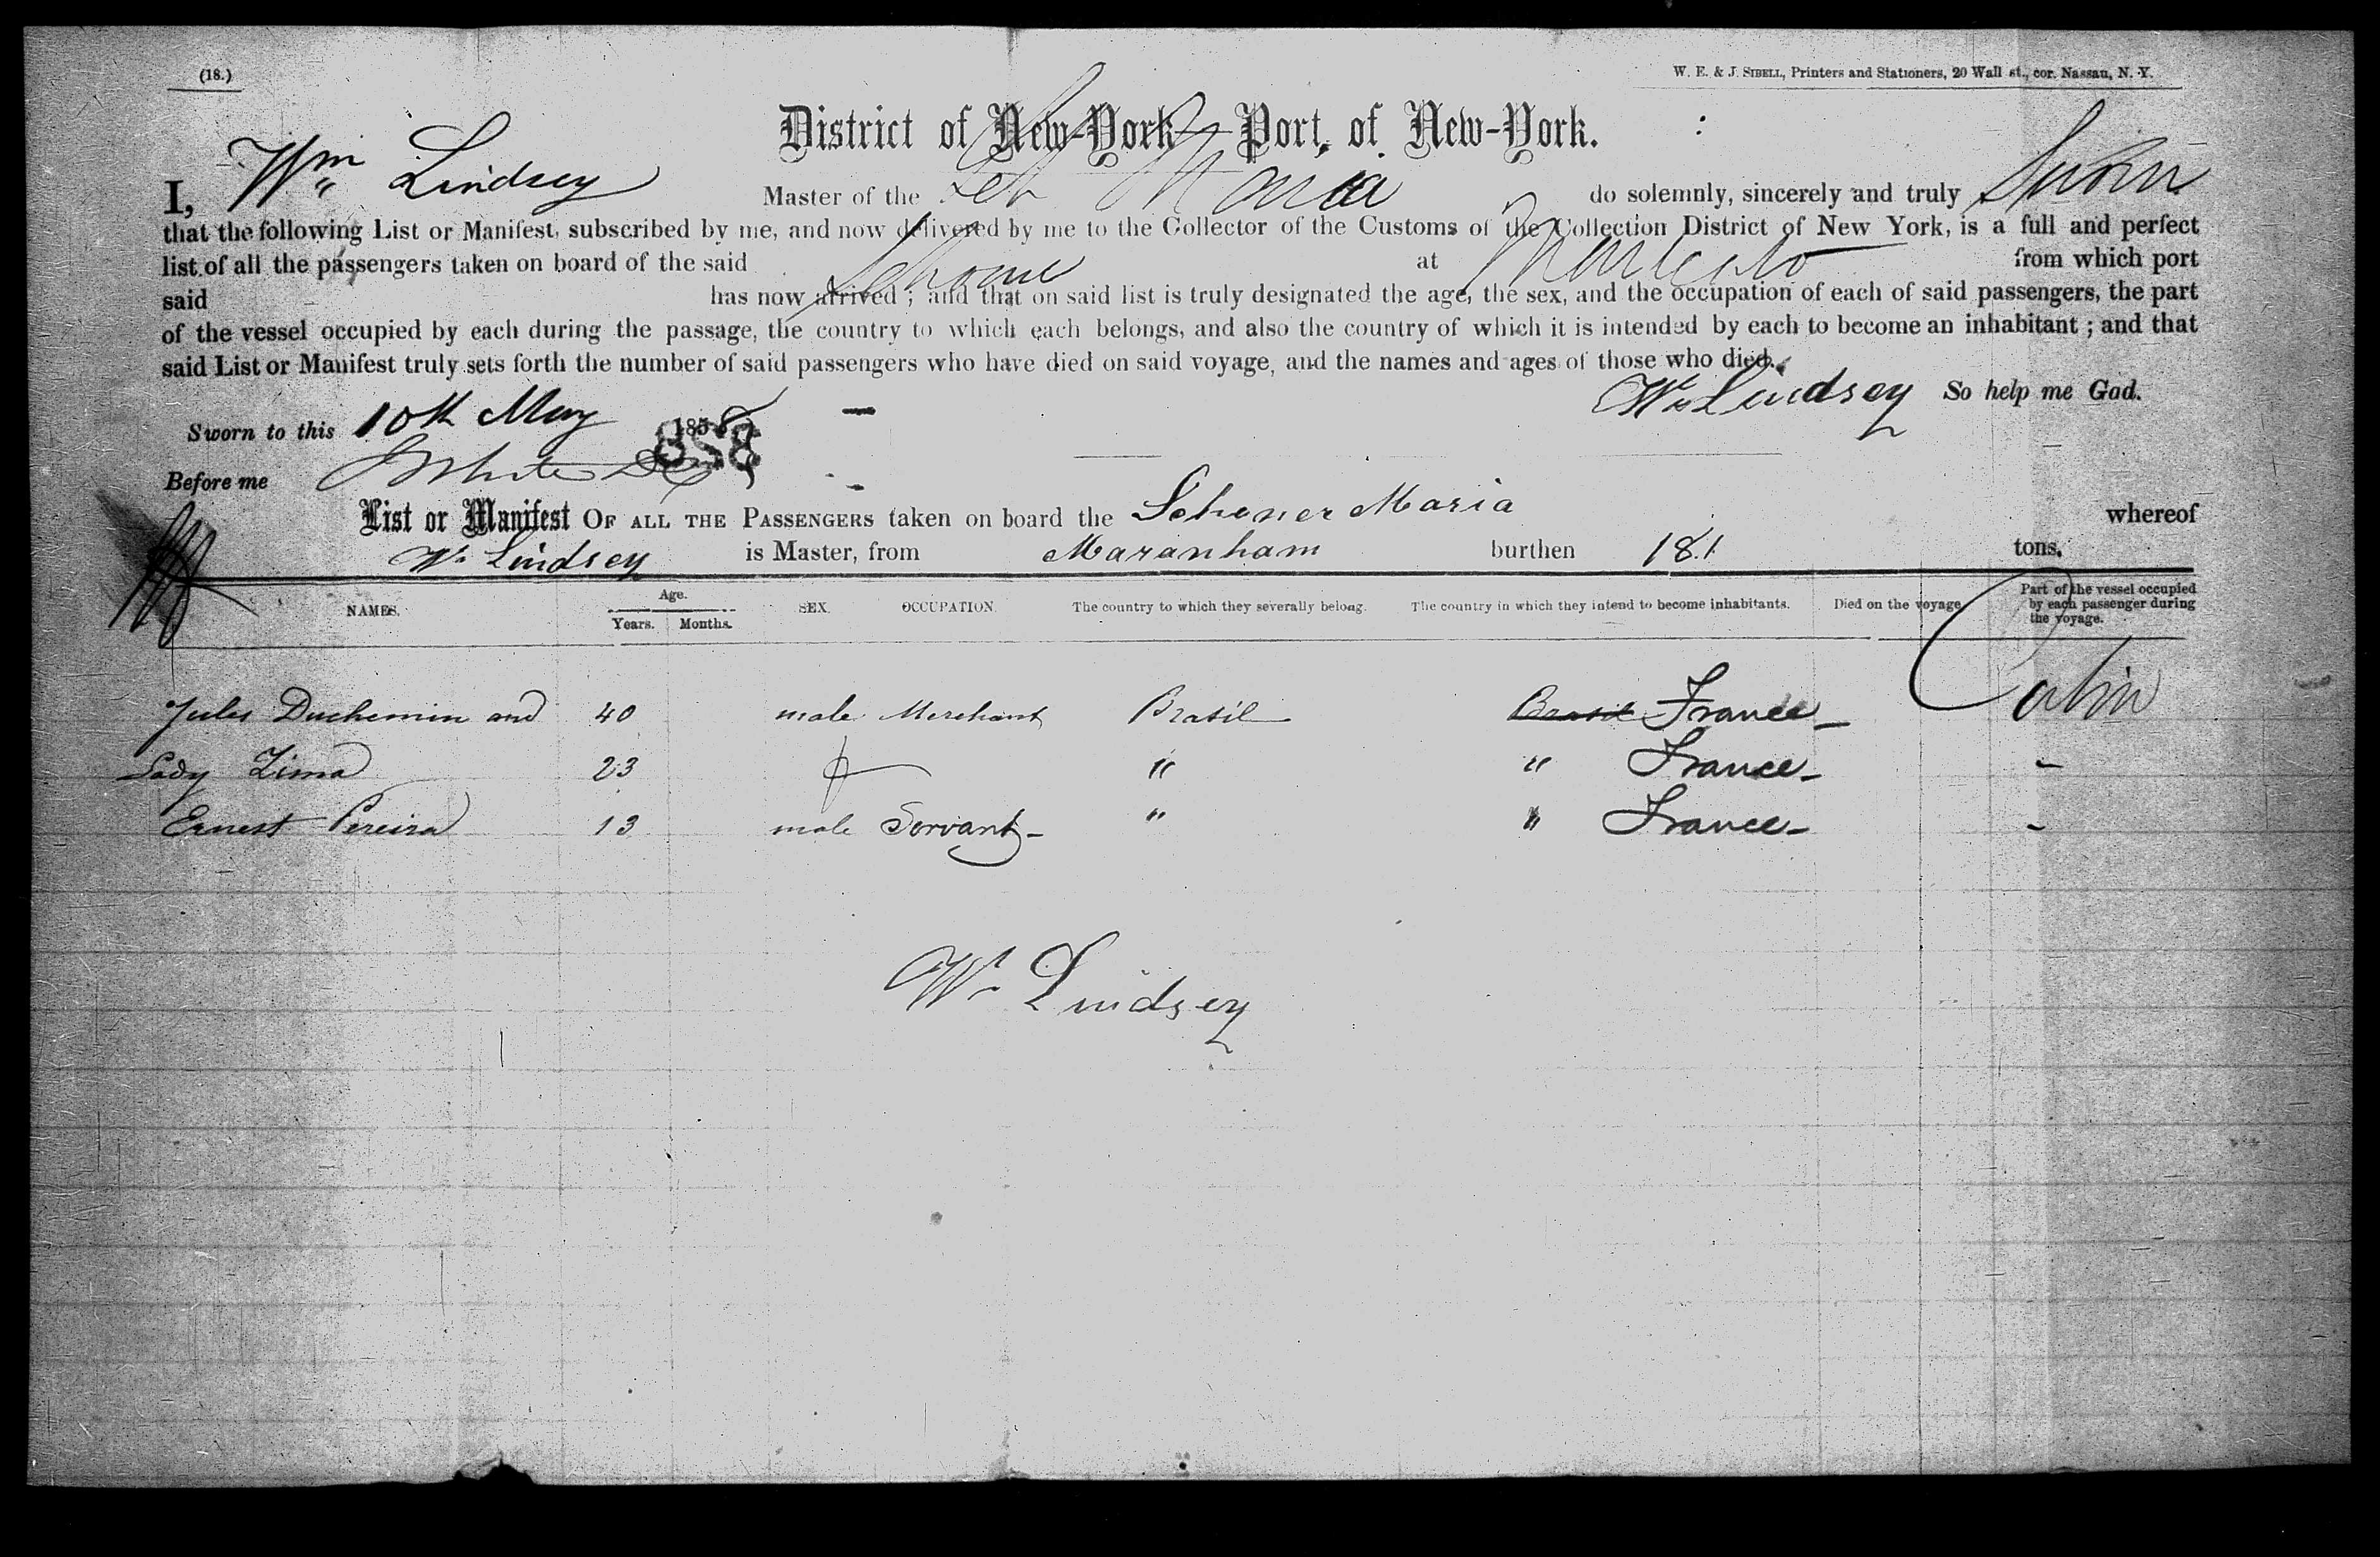 (18.)
W. E. & J. SIBELL, Printers and Stationers, 20 Wall st., cor. Nassau, N. Y.
District of New-York—Port of New-York.
I, Wm Lindsey Master of the Sch Maria do solemnly, sincerely and truly Swear
that the following List or Manifest, subscribed by me, and now delivered by me to the Collector of the Customs of the Collection District of New York, is a full and perfect
list of all the passengers taken on board of the said at from which port
said has now arrived ; and that on said list is truly designated the age, the sex, and the occupation of each of said passengers, the part
of the vessel occupied by each during the passage, the country to which each belongs, and also the country of which it is intended by each to become an inhabitant ; and that
said List or Manifest truly sets forth the number of said passengers who have died on said voyage, and the names and ages of those who died.
Wm Lindsey So help me God.
Sworn to this 10th May 1858
358
Before me
List or Manifest OF ALL THE PASSENGERS taken on board the Schoner Maria whereof
Wm Lindsey is Master, from Maranham burthen 181 tons.
NAMES. Age. Years. Months. SEX. OCCUPATION. The country to which they severally belong. The country in which they intend to become inhabitants. Died on the voyage. Part of the vessel occupied by each passenger during the voyage.
Jules Duchemin and 40 male Merchant Brasil Brasil France Cabin
Lady Lima 23 f " " France -
Ernest Pereira 13 male Servant " " France -
Wm Lindsey